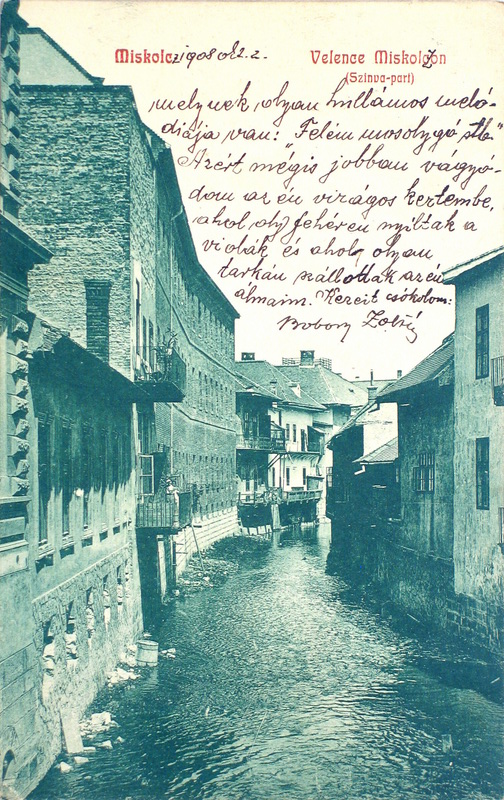 Miskolcz 1908 okt. 2.
Velence Miskolczon
(Szinva-part)
melynek olyan hullámos meló-
diája van: "Felém mosolygó stb"
Azért mégis jobban vágyó-
dom az én virágos kertembe,
ahol oly fehéren nyiltak a
violák és ahol olyan
tarkán szállottak az én
álmaim. Kezeit csókolom:
Bobory Zoltán